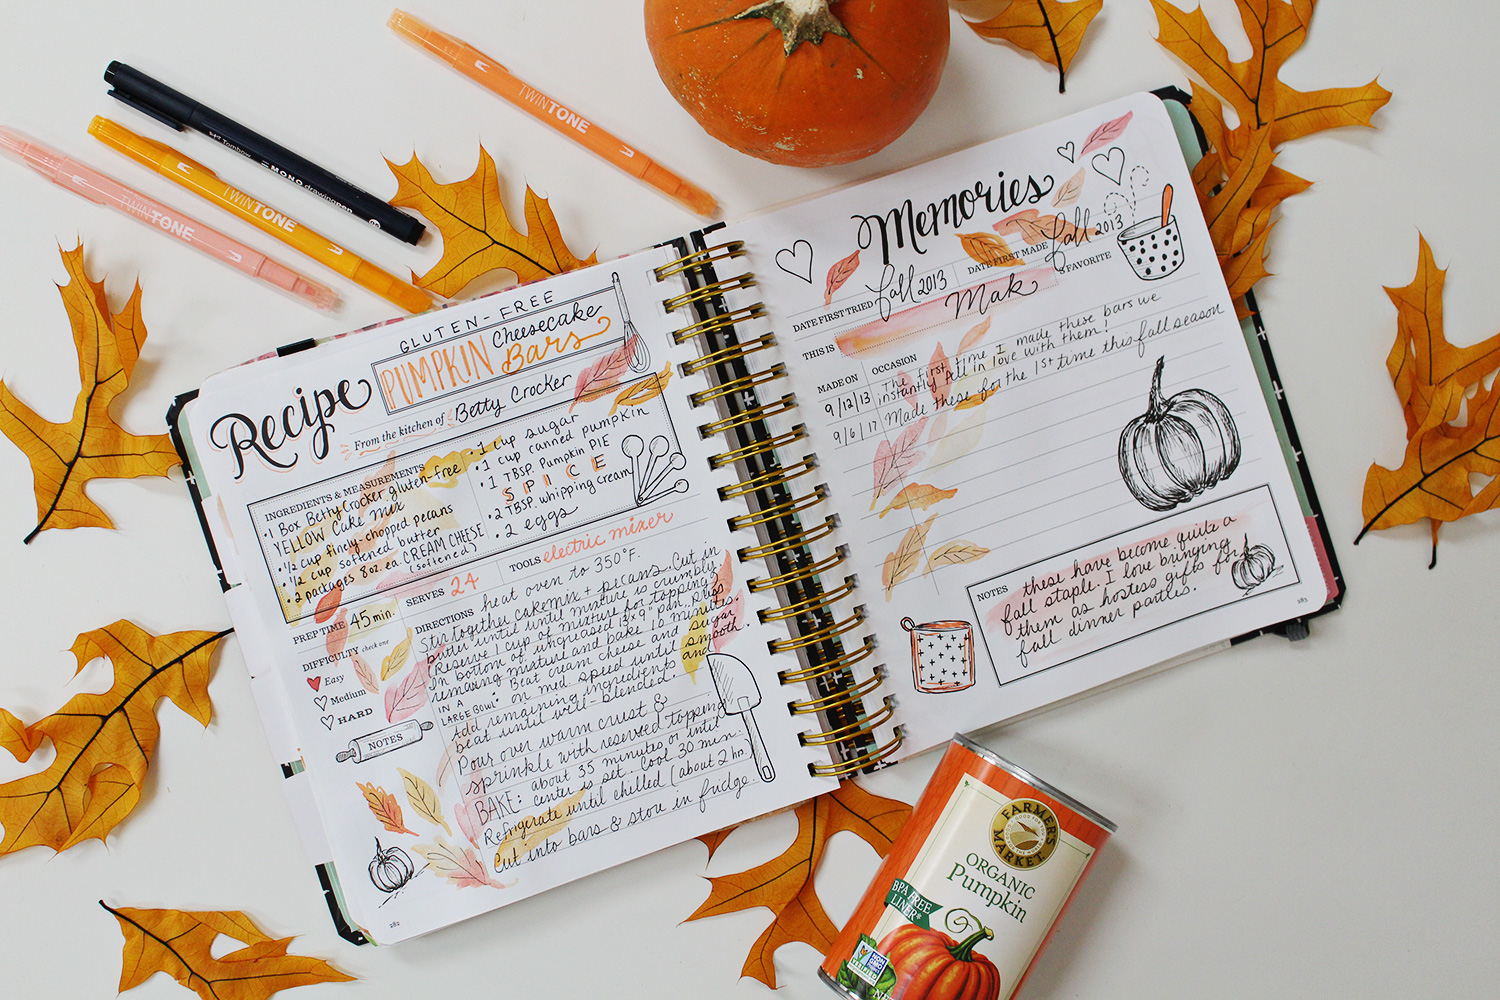 TWINTONE
TWINTONE
TWINTONE
Tombow MONO drawing pen
Recipe
GLUTEN-FREE
PUMPKIN Cheesecake
Bars
From the kitchen of Betty Crocker
INGREDIENTS & MEASUREMENTS
• 1 Box Betty Crocker gluten-free
YELLOW Cake Mix
• 1/2 cup finely-chopped pecans
• 1/2 cup softened butter
• 2 packages 8oz. ea. CREAM CHEESE
(softened)
• 1 cup sugar
• 1 cup canned pumpkin
• 1 TBSP. Pumpkin PIE
SPICE
• 2 TBSP. whipping cream
• 2 eggs
PREP TIME 45 min.
SERVES 24
TOOLS electric mixer
DIFFICULTY check one
Easy
Medium
HARD
NOTES
DIRECTIONS heat oven to 350°F.
Stir together cakemix + pecans. Cut in
butter until until mixture is crumbly.
(Reserve 1 cup of mixture for topping)
In bottom of ungreased 13x9" pan, press
remaining mixture and bake 10 minutes.
IN A LARGE BOWL • Beat cream cheese and sugar
on med. speed until smooth.
Add remaining ingredients and
beat until well-blended.
Pour over warm crust &
sprinkle with reserved topping
BAKE: about 35 minutes or until
center is set. Cool 30 min.
Refrigerate until chilled (about 2 hr.)
Cut into bars & store in fridge.
282
Memories
DATE FIRST TRIED fall 2013
DATE FIRST MADE fall 2013
THIS IS Mak 'S FAVORITE
MADE ON
OCCASION
9/12/13 The first time I made these bars we
instantly fell in love with them!
9/6/17 Made these for the 1st time this fall season
NOTES these have become quite a
fall staple. I love bringing
them as hostess gifts for
fall dinner parties.
283
FARMER'S MARKET
ORGANIC
Pumpkin
BPA FREE
LINER*
NON GMO
VERIFIED